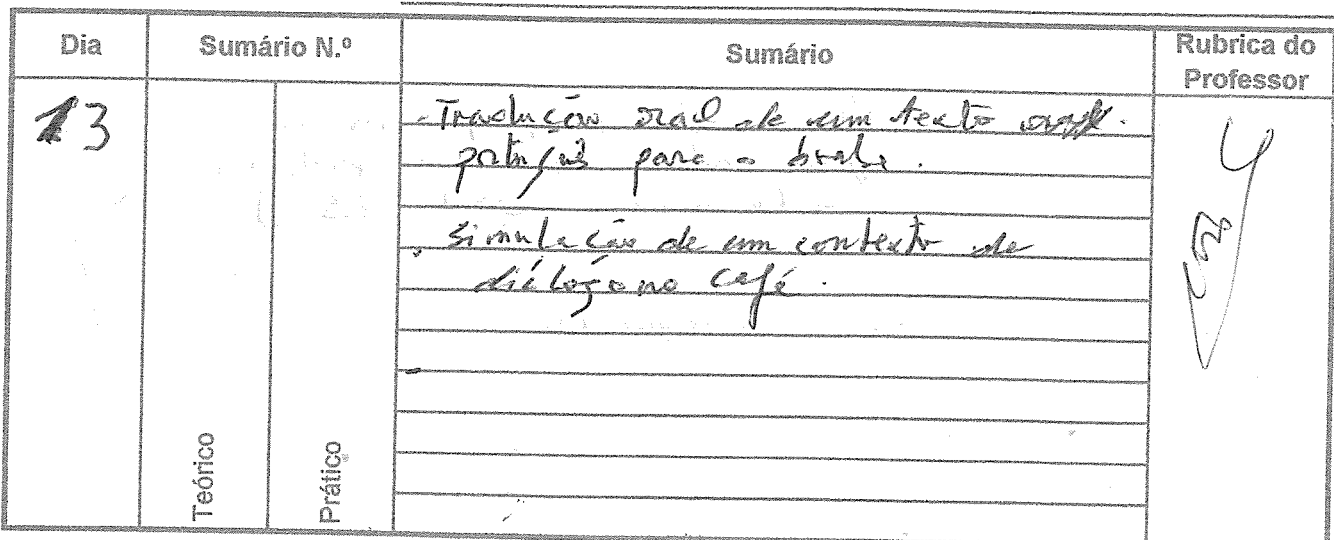 Dia
Sumário N.º
Sumário
Rubrica do
Professor
13
Teórico
Prático
- Tradução oral de um texto
português para o
. Simulação de um contexto de
diálogo no café.